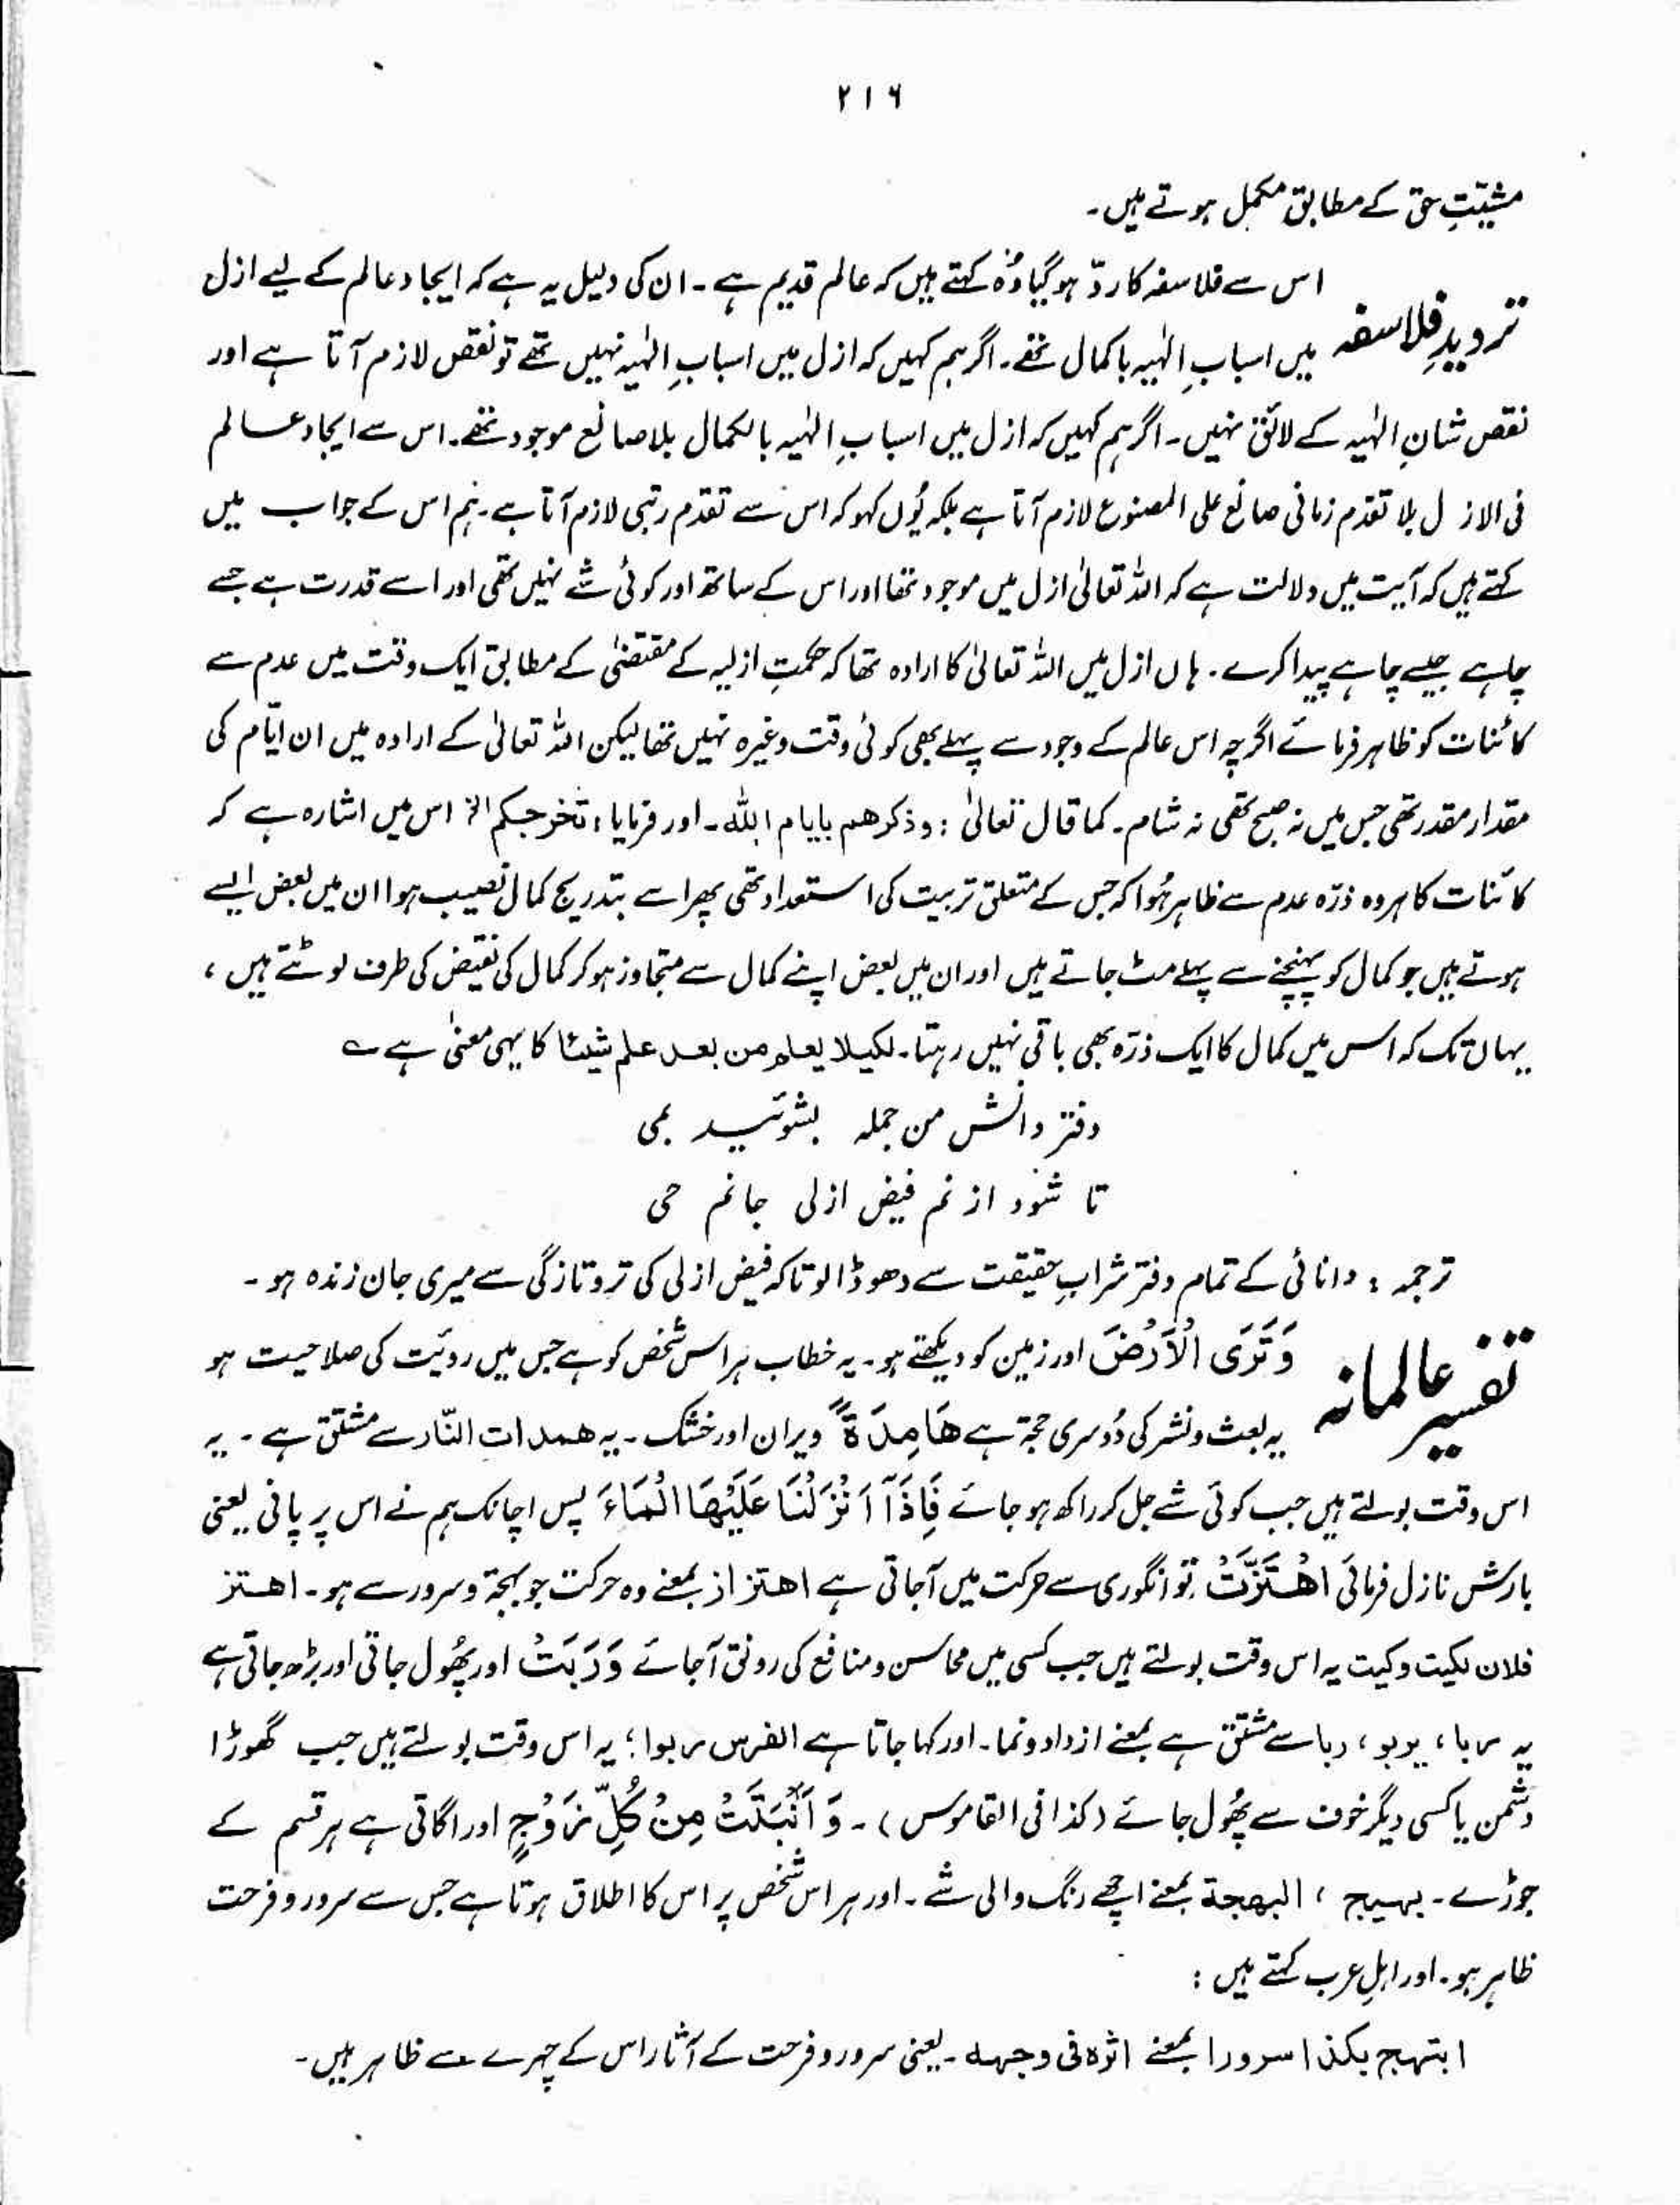 ۲۱۶
مشیّتِ حق کے مطابق مکمل ہوتے ہیں۔
تردیدِ فلاسفہ
اس سے فلاسفہ کا ردّ ہو گیا وُہ کہتے ہیں کہ عالم قدیم ہے۔ ان کی دلیل یہ ہے کہ ایجادِ عالم کے لیے ازل
میں اسبابِ الٰہیہ باکمال تھے۔ اگر ہم کہیں کہ ازل میں اسبابِ الٰہیہ نہیں تھے تو نقص لازم آتا ہے اور
نقص شانِ الٰہیہ کے لائق نہیں۔ اگر ہم کہیں کہ ازل میں اسبابِ الٰہیہ بالکمال بلا صانع موجود تھے۔ اس سے ایجاد عالم
فی الازل بلا تقدّم زمانی صانع علی المصنوع لازم آتا ہے بلکہ یُوں کہو کہ اس سے تقدم رتبی لازم آتا ہے۔ ہم اس کے جواب میں
کہتے ہیں کہ آیت میں دلالت ہے کہ اللہ تعالیٰ ازل میں موجود تھا اور اس کے ساتھ اور کوئی شے نہیں تھی اور اسے قدرت ہے جسے
چاہے جیسے چاہے پیدا کرے۔ ہاں ازل میں اللہ تعالیٰ کا ارادہ تھا کہ حکمتِ ازلیہ کے مقتضیٰ کے مطابق ایک وقت میں عدم سے
کائنات کو ظاہر فرمائے اگرچہ اس عالم کے وجود سے پہلے بھی کوئی وقت وغیرہ نہیں تھا لیکن اللہ تعالیٰ کے ارادہ میں ان ایّام کی
مقدار مقدر تھی جس میں نہ صبح تھی نہ شام۔ کما قال تعالیٰ : وذکرھم بایام اللہ۔ اور فرمایا : نخرجکم الخ اس میں اشارہ ہے کہ
کائنات کا ہر وہ ذرّہ عدم سے ظاہر ہُوا کہ جس کے متعلق تربیت کی استعداد تھی پھر اسے بتدریج کمال نصیب ہوا ان میں بعض ایسے
ہوتے ہیں جو کمال کو پہنچنے سے پہلے مٹ جاتے ہیں اور ان میں بعض اپنے کمال سے متجاوز ہو کر کمال کی نقیض کی طرف لوٹتے ہیں ،
یہاں تک کہ اس میں کمال کا ایک ذرّہ بھی باقی نہیں رہتا۔ لکیلا یعلم من بعد علم شیئا کا یہی معنیٰ ہے ؎
دفتر دانش من جملہ بشوئید بمی
تا شود از نم فیض ازلی جانم حی
ترجمہ : دانائی کے تمام دفتر شرابِ حقیقت سے دھو ڈالو تاکہ فیض ازلی کی تروتازگی سے میری جان زندہ ہو۔
تفسیر عالمانہ
وَتَرَی الْاَرْضَ اور زمین کو دیکھتے ہو۔ یہ خطاب ہر اس شخص کو ہے جس میں رویّت کی صلاحیت ہو
یہ بعث ونشر کی دُوسری حجۃ ہے ھَامِدَۃً ویران اور خشک۔ یہ ھمدات النّار سے مشتق ہے۔ یہ
اس وقت بولتے ہیں جب کوئی شے جل کر راکھ ہو جائے فَاِذَآ اَنْزَلْنَا عَلَیْھَا الْمَآءَ پس اچانک ہم نے اس پر پانی یعنی
بارش نازل فرمائی اھْتَزَّتْ تو انگوری سے حرکت میں آجاتی ہے اھتزاز بمعنے وہ حرکت جو بہجۃ و سرور سے ہو۔ اھتز
فلان لکیت وکیت یہ اس وقت بولتے ہیں جب کسی میں محاسن و منافع کی رونق آجائے وَرَبَتْ اور پھُول جاتی اور بڑھ جاتی ہے
یہ ربا ، یربو ، ربا سے مشتق ہے بمعنے ازداد ونما۔ اور کہا جاتا ہے الفرس ربوا ؛ یہ اس وقت بولتے ہیں جب گھوڑا
دشمن یا کسی دیگر خوف سے پھُول جائے (کذا فی القاموس)۔ وَ اَنْۢبَتَتْ مِنْ کُلِّ زَوْجٍ اور اگاتی ہے ہر قسم کے
جوڑے۔ بھیج ، البھجۃ بمعنے اچھے رنگ والی شے۔ اور ہر اس شخص پر اس کا اطلاق ہوتا ہے جس سے سرور و فرحت
ظاہر ہو۔ اور اہلِ عرب کہتے ہیں :
ابتھج بکذا سرورا بمعنے اثرہ فی وجھہ۔ یعنی سرور و فرحت کے آثار اس کے چہرے سے ظاہر ہیں۔